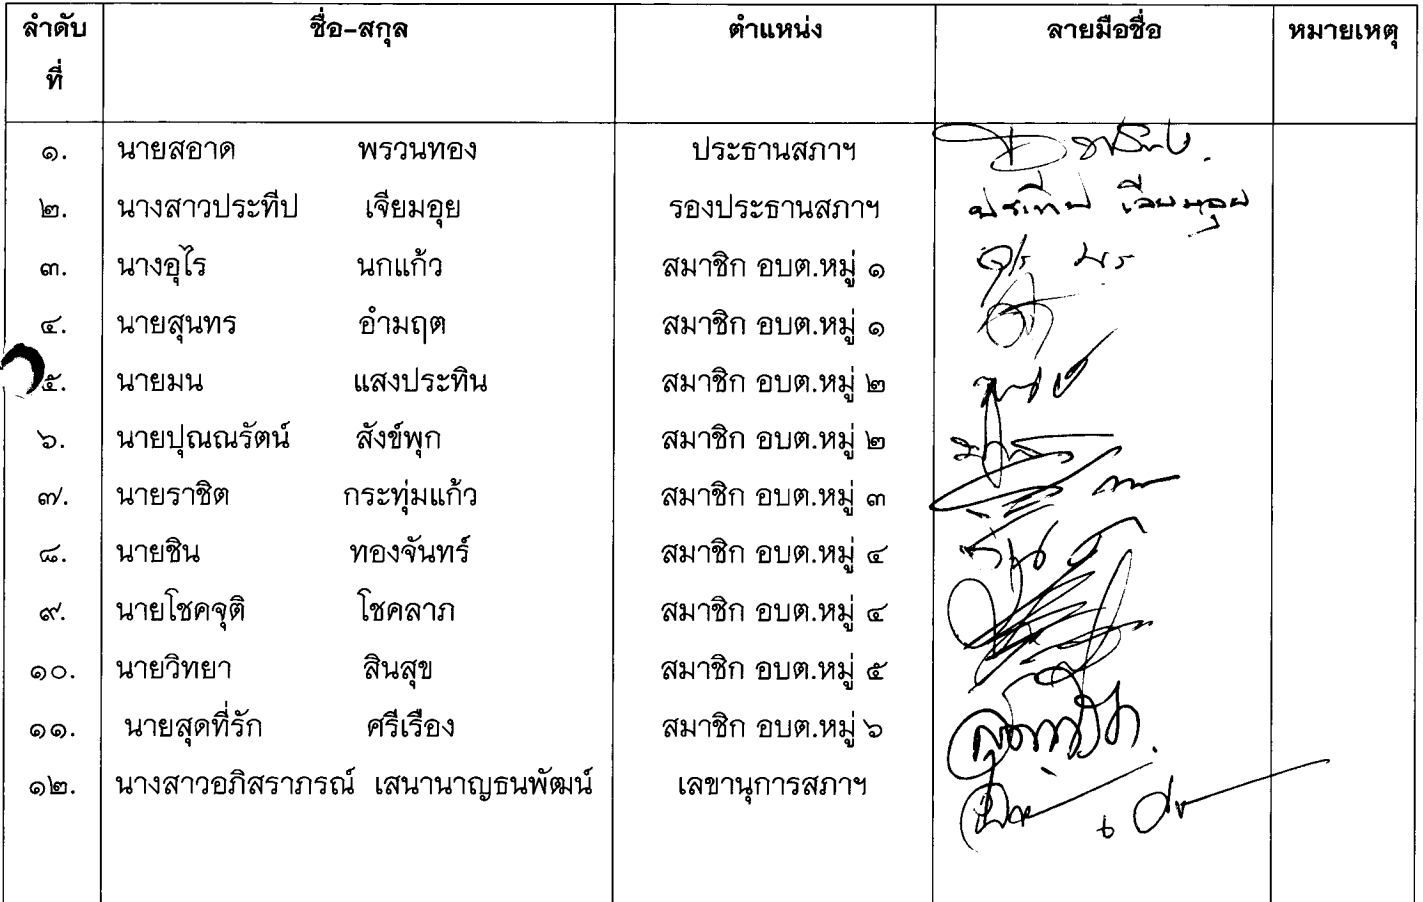 ลำดับที่ ชื่อ-สกุล ตำแหน่ง ลายมือชื่อ หมายเหตุ
๑. นายสอาด พรวนทอง ประธานสภาฯ
๒. นางสาวประทีป เจียมอุย รองประธานสภาฯ ประทีป เจียมอุย
๓. นางอุไร นกแก้ว สมาชิก อบต.หมู่ ๑
๔. นายสุนทร อำมฤต สมาชิก อบต.หมู่ ๑
๕. นายมน แสงประทิน สมาชิก อบต.หมู่ ๒
๖. นายปุณณรัตน์ สังข์พุก สมาชิก อบต.หมู่ ๒
๗. นายราชิต กระทุ่มแก้ว สมาชิก อบต.หมู่ ๓
๘. นายชิน ทองจันทร์ สมาชิก อบต.หมู่ ๔
๙. นายโชคจุติ โชคลาภ สมาชิก อบต.หมู่ ๔
๑๐. นายวิทยา สินสุข สมาชิก อบต.หมู่ ๕
๑๑. นายสุดที่รัก ศรีเรือง สมาชิก อบต.หมู่ ๖
๑๒. นางสาวอภิสราภรณ์ เสนานาญธนพัฒน์ เลขานุการสภาฯ